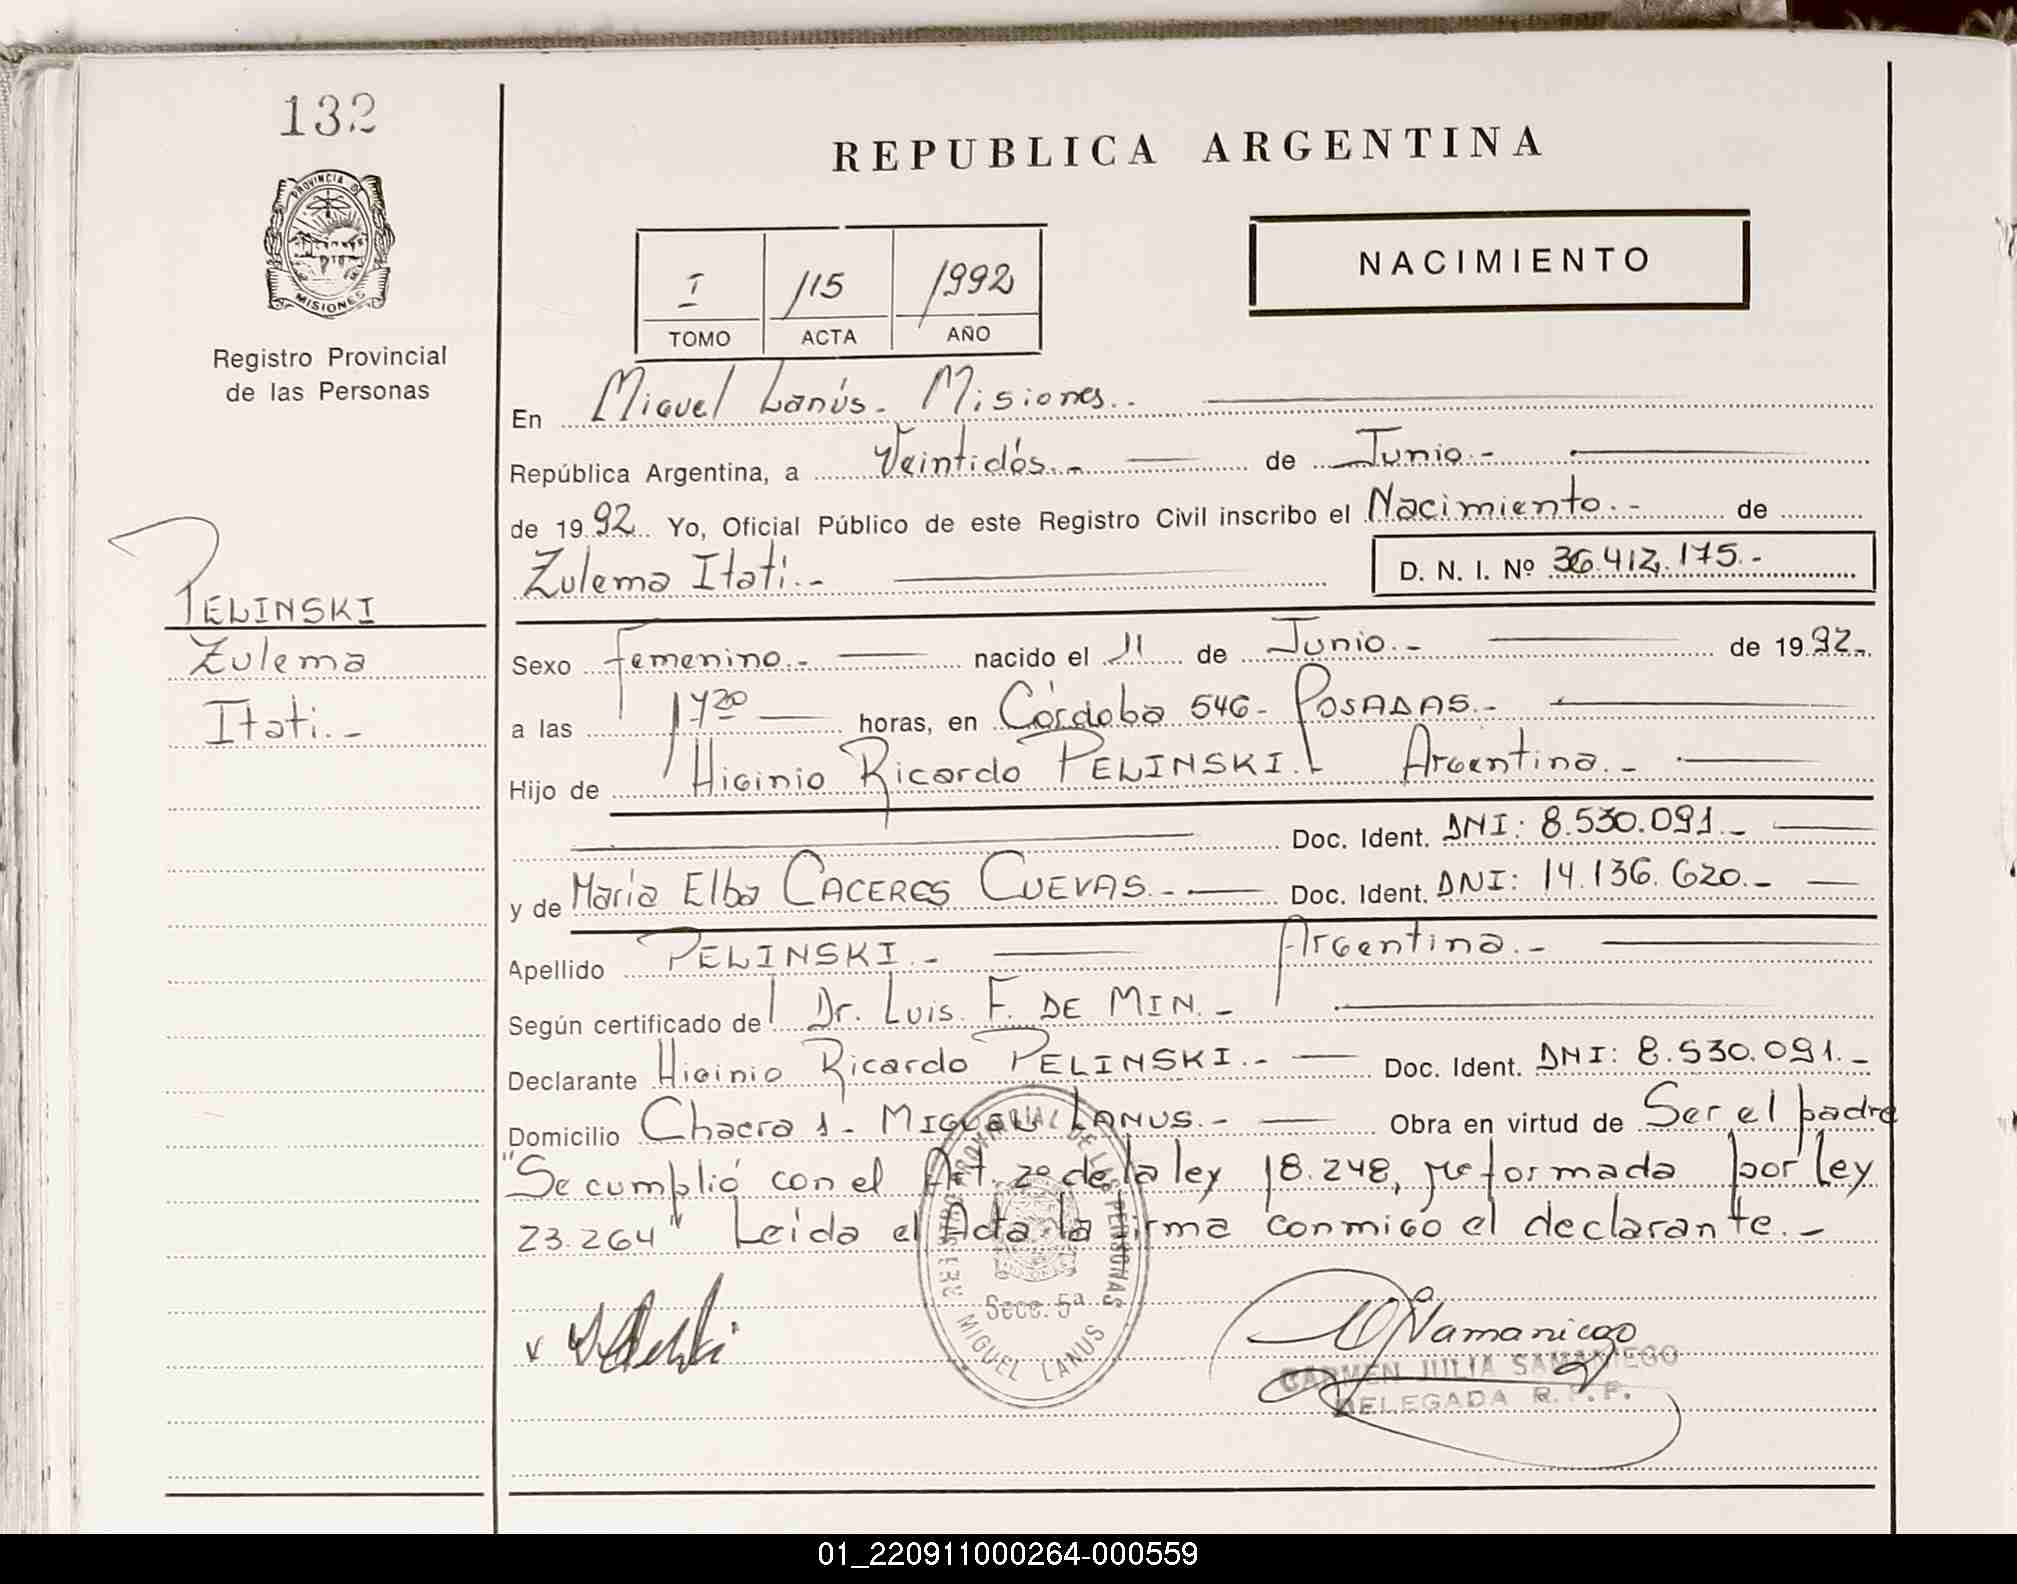 132
REPUBLICA ARGENTINA
PROVINCIA DE
MISIONES
Registro Provincial
de las Personas
NACIMIENTO
I 115 1992
TOMO ACTA AÑO
En Miguel Lanús. Misiones..
República Argentina, a Veintidós.- de Junio.-
de 1992 Yo, Oficial Público de este Registro Civil inscribo el Nacimiento.- de
Zulema Itati.- D. N. I. Nº 36.412.175.-
PELINSKI
Zulema
Itati.-
Sexo femenino.- nacido el 11 de Junio.- de 1992.-
a las horas, en Córdoba 546- POSADAS.-
Hijo de Higinio Ricardo PELINSKI. Argentina.-
Doc. Ident. DNI: 8.530.091.-
y de Maria Elba CACERES CUEVAS.- Doc. Ident. DNI: 14.136.620.-
Apellido PELINSKI.- Argentina.-
Según certificado de Dr. Luis F. DE MIN.-
Declarante Higinio Ricardo PELINSKI.- Doc. Ident. DNI: 8.530.091.-
Domicilio Chacra 1- MIGUEL LANUS.- Obra en virtud de Ser el padre
"Se cumplió con el Art. 2º de la ley 18.248, reformada por ley
23.264" Leida el Acta la firma conmigo el declarante.-
REGISTRO PROVINCIAL DE LAS PERSONAS
Secc. 5ª
MIGUEL LANUS
Samaniego
CARMEN JULIA SAMANIEGO
DELEGADA R. P. P.
01_220911000264-000559